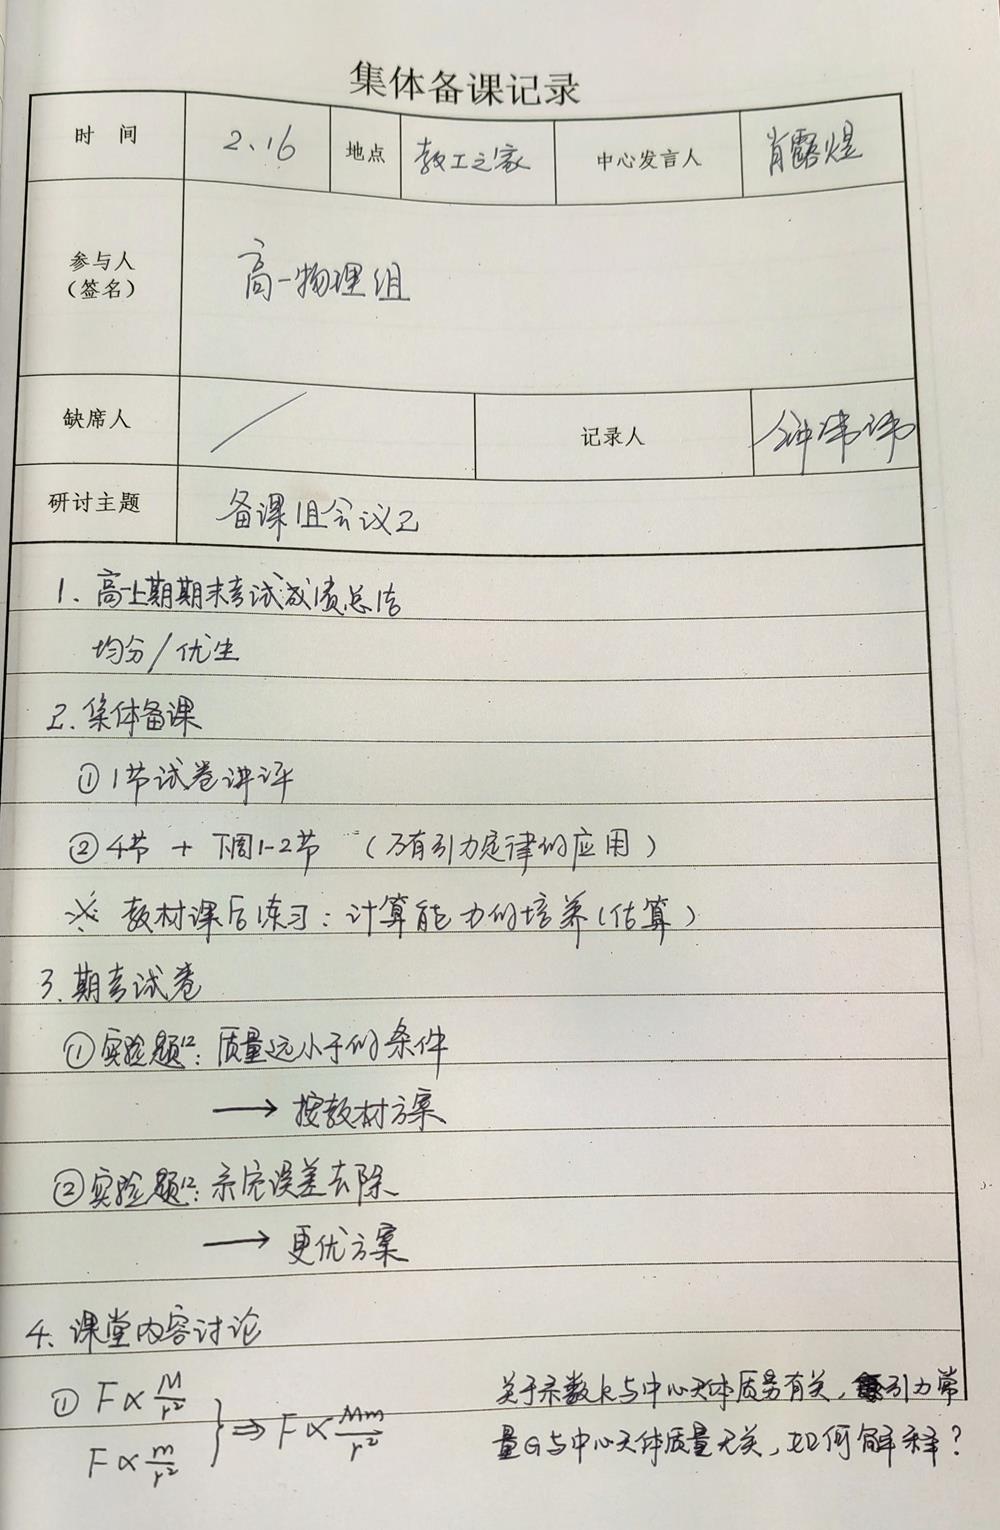 集体备课记录
时 间 2.16 地点 教工之家 中心发言人 肖露煜
参与人
（签名） 高一物理组
缺席人 / 记录人 钟沸沸
研讨主题 备课组会议2
1. 高一上期期末考试成绩总结
均分/优生
2. 集体备课
① 1节试卷讲评
② 4节 + 下周1-2节 （万有引力定律的应用）
※ 教材课后练习：计算能力的培养（估算）
3. 期考试卷
① 实验题12：质量远小于的条件
→ 按教材方案
② 实验题12：系统误差去除
→ 更优方案
4. 课堂内容讨论
① F∝M/r² F∝m/r² } ⇒ F∝Mm/r²
关于系数k与中心天体质量有关，引力常
量G与中心天体质量无关，如何解释？